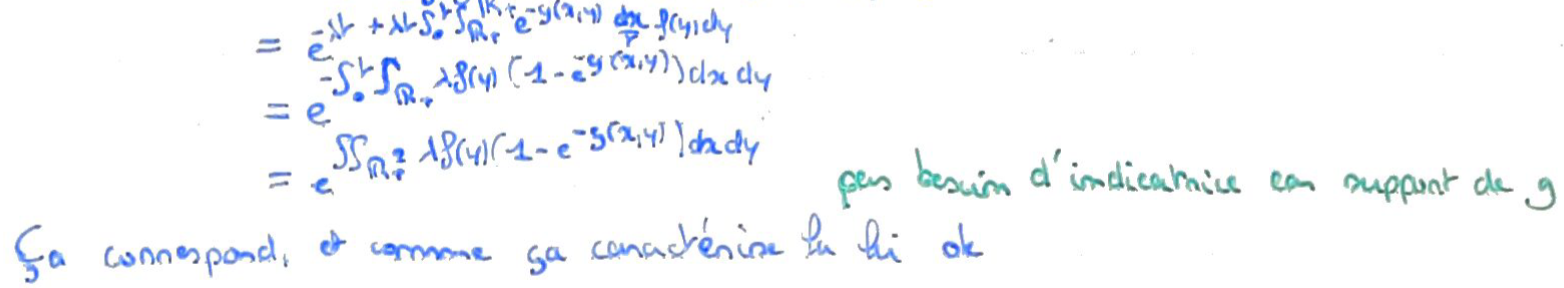 = e^{-λr + λr ∫_0^r ∫_{ℝ_+} e^{-g(x,y)} \frac{dx}{r} f(y) dy}
= e^{-∫_0^r ∫_{ℝ_+} λ f(y) (1 - e^{-g(x,y)}) dx dy}
= e^{∫∫_{ℝ_+^2} λ f(y) (1 - e^{-g(x,y)}) dx dy}
pas besoin d'indicatrice car support de g
Ça correspond, et comme ça caractérise la loi ok